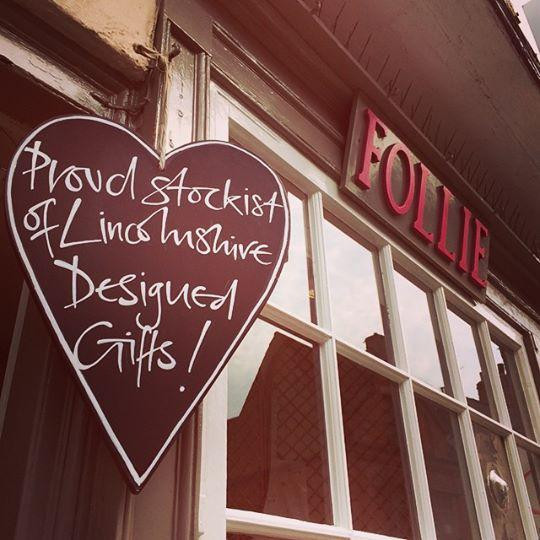 Proud stockist
of Lincolnshire
Designed
Gifts!
FOLLIE